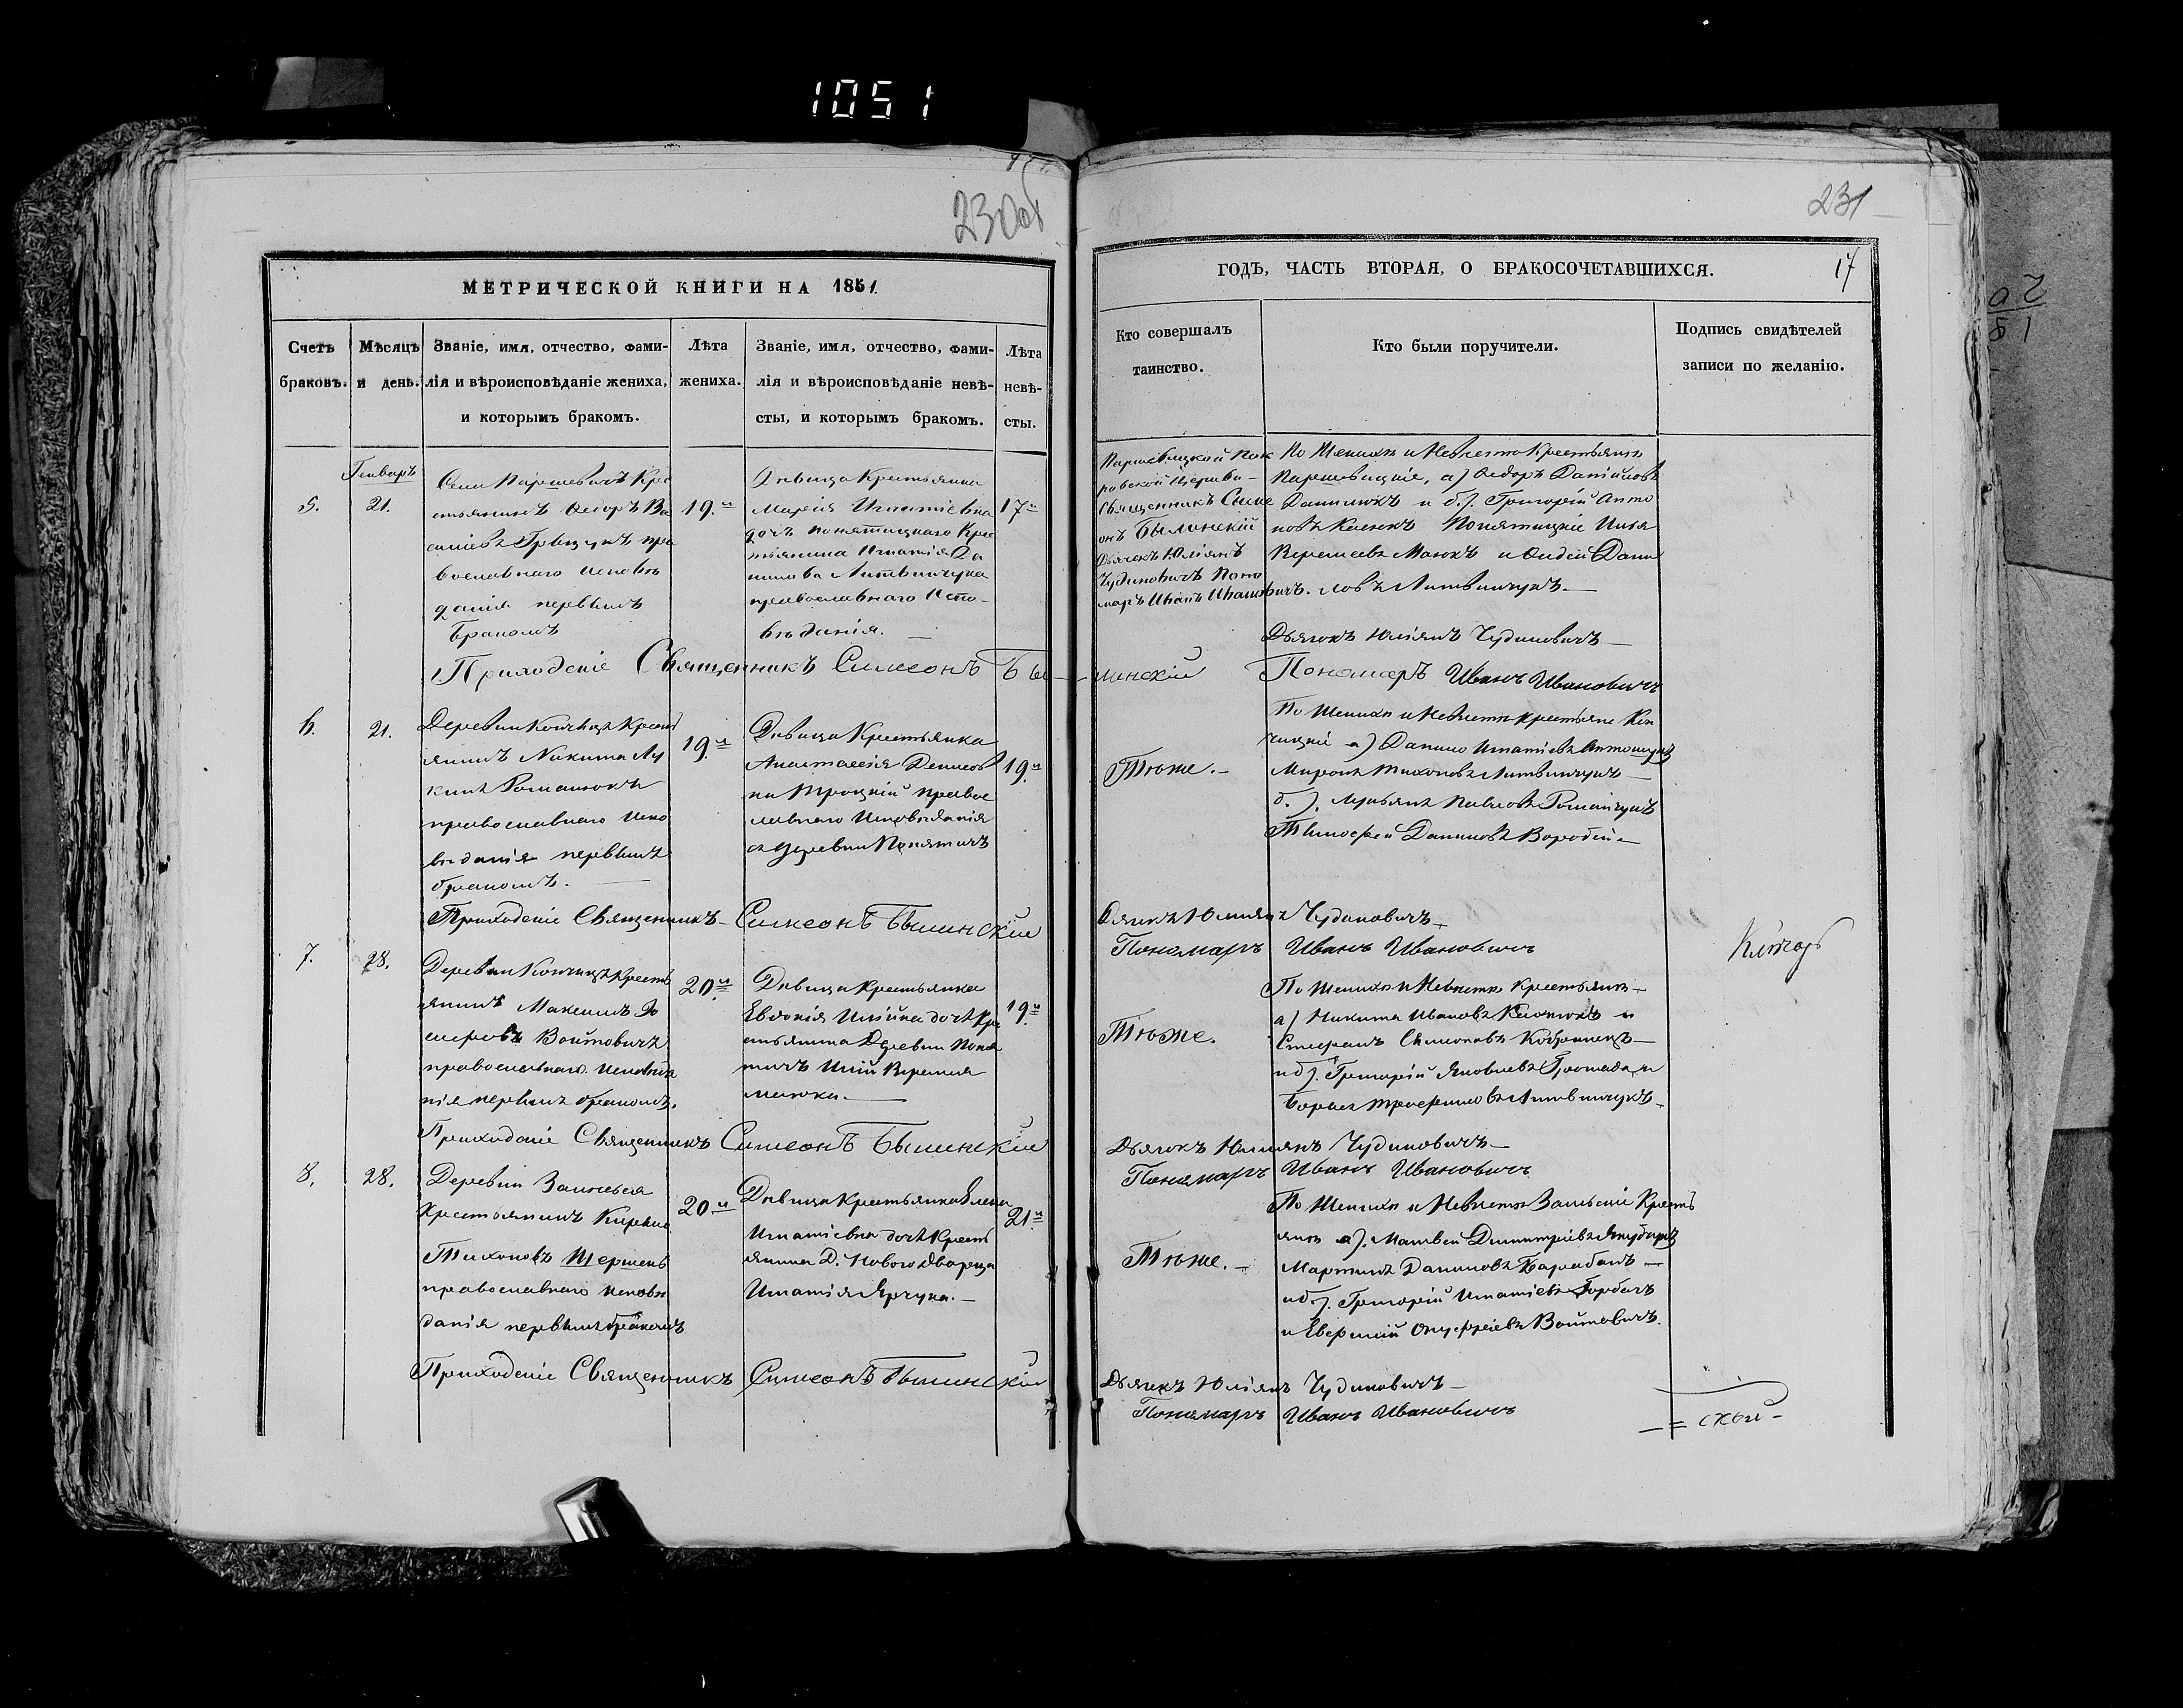 1051
230об
231
МЕТРИЧЕСКОЙ КНИГИ НА 1851.
ГОДЪ, ЧАСТЬ ВТОРАЯ, О БРАКОСОЧЕТАВШИХСЯ.
17
Счетъ браковъ.
Мѣсяцъ и день.
Званіе, имя, отчество, фами-
лія и вѣроисповѣданіе жениха,
и которымъ бракомъ.
Лѣта
жениха.
Званіе, имя, отчество, фами-
лія и вѣроисповѣданіе невѣ-
сты, и которымъ бракомъ.
Лѣта
невѣ-
сты.
Кто совершалъ
таинство.
Кто были поручители.
Подпись свидѣтелей
записи по желанію.
Генварь
5.
21.
Села Паршевичъ Крес
тьянинъ Ѳедоръ Ва
силіевъ Грицукъ пра
вославнаго исповѣ
данія первымъ
бракомъ
19.
Дѣвица Крестьянка
Марія Игнатіевна
дочь понятицкаго Крес
тьянина Игнатія Да
нилова Литвинчука
православнаго Испо-
вѣданія.
17
Паршевицкой Пок
ровской Церкви
Священникъ Симе
онъ Былинскій
Дьячекъ Юліянъ
Чудиновичъ Поно
марь Иванъ Ивановичъ.
По Женихѣ и Невѣстѣ Крестьянѣ
Паршевицкіе, а) Ѳедоръ
Данилюкъ и б). Григорій Анто
новъ Понятицкіе Илья
и Дани
ловъ Литвинчукъ.
Приходскіе Священникъ Симеонъ Былинскій
Дьячокъ Юліянъ Чудиновичъ
Пономарь Иванъ Ивановичъ
6.
21.
Деревни Крест
янинъ Никита Лу
кинъ Романюкъ
православнаго испо
вѣданія первымъ
бракомъ.
19.
Дѣвица Крестьянка
Анастасія Денисов
на Троцкій правос
лавнаго Исповѣданія
съ деревни Понятичъ
19.
Тѣже.
По Женихѣ и Невѣстѣ крестьяне
а) Данило Игнатіевъ
Миронъ Тихоновъ Литвинчукъ
б). Лукьянъ Павловъ Романчукъ
Тимофей Даниловъ Воробей
Приходскіе Священникъ Симеонъ Былинскій
Дячекъ Юліянъ Чудиновичъ
Пономарь Иванъ Ивановичъ
7.
28.
Деревни Крестъ
янинъ Максимъ
Войтовичъ
православнаго исповѣда
нія первымъ бракомъ.
20.
Дѣвица Крестьянка
Евдокія дочь Кре
стьянина Деревни Поня
тичъ
19.
Тѣже.
По Женихѣ и Невѣстѣ Крестьянѣ
а) Никита Ивановъ и
Стефанъ Симоновъ Кобринецъ
и б). Григорій Яковлевъ Громада и
Борисъ Трофимовъ Литвинчукъ
Приходскіе Священникъ Симеонъ Былинскій
Дьячокъ Юліянъ Чудиновичъ
Пономарь Иванъ Ивановичъ
8.
28.
Деревни Залѣсья
Крестьянинъ
Тихоновъ Шершень
православнаго исповѣ
данія первымъ бракомъ
20
Дѣвица крестьянка Елена
Игнатіевна дочь Крест
янина Д. Новаго Дворца
Игнатія Ярчука.
21.
Тѣже.
По Женихѣ и Невѣстѣ Залѣскіе Кресть
янѣ а). Матвей Димитріевъ
Мартинъ Даниловъ Барабанъ
и б). Григорій Игнатіевъ Горбачъ
и Онуфріевъ Войтовичъ.
Приходскіе Священникъ Симеонъ Былинскій
Дьячекъ Юліянъ Чудиновичъ
Пономарь Иванъ Ивановичъ